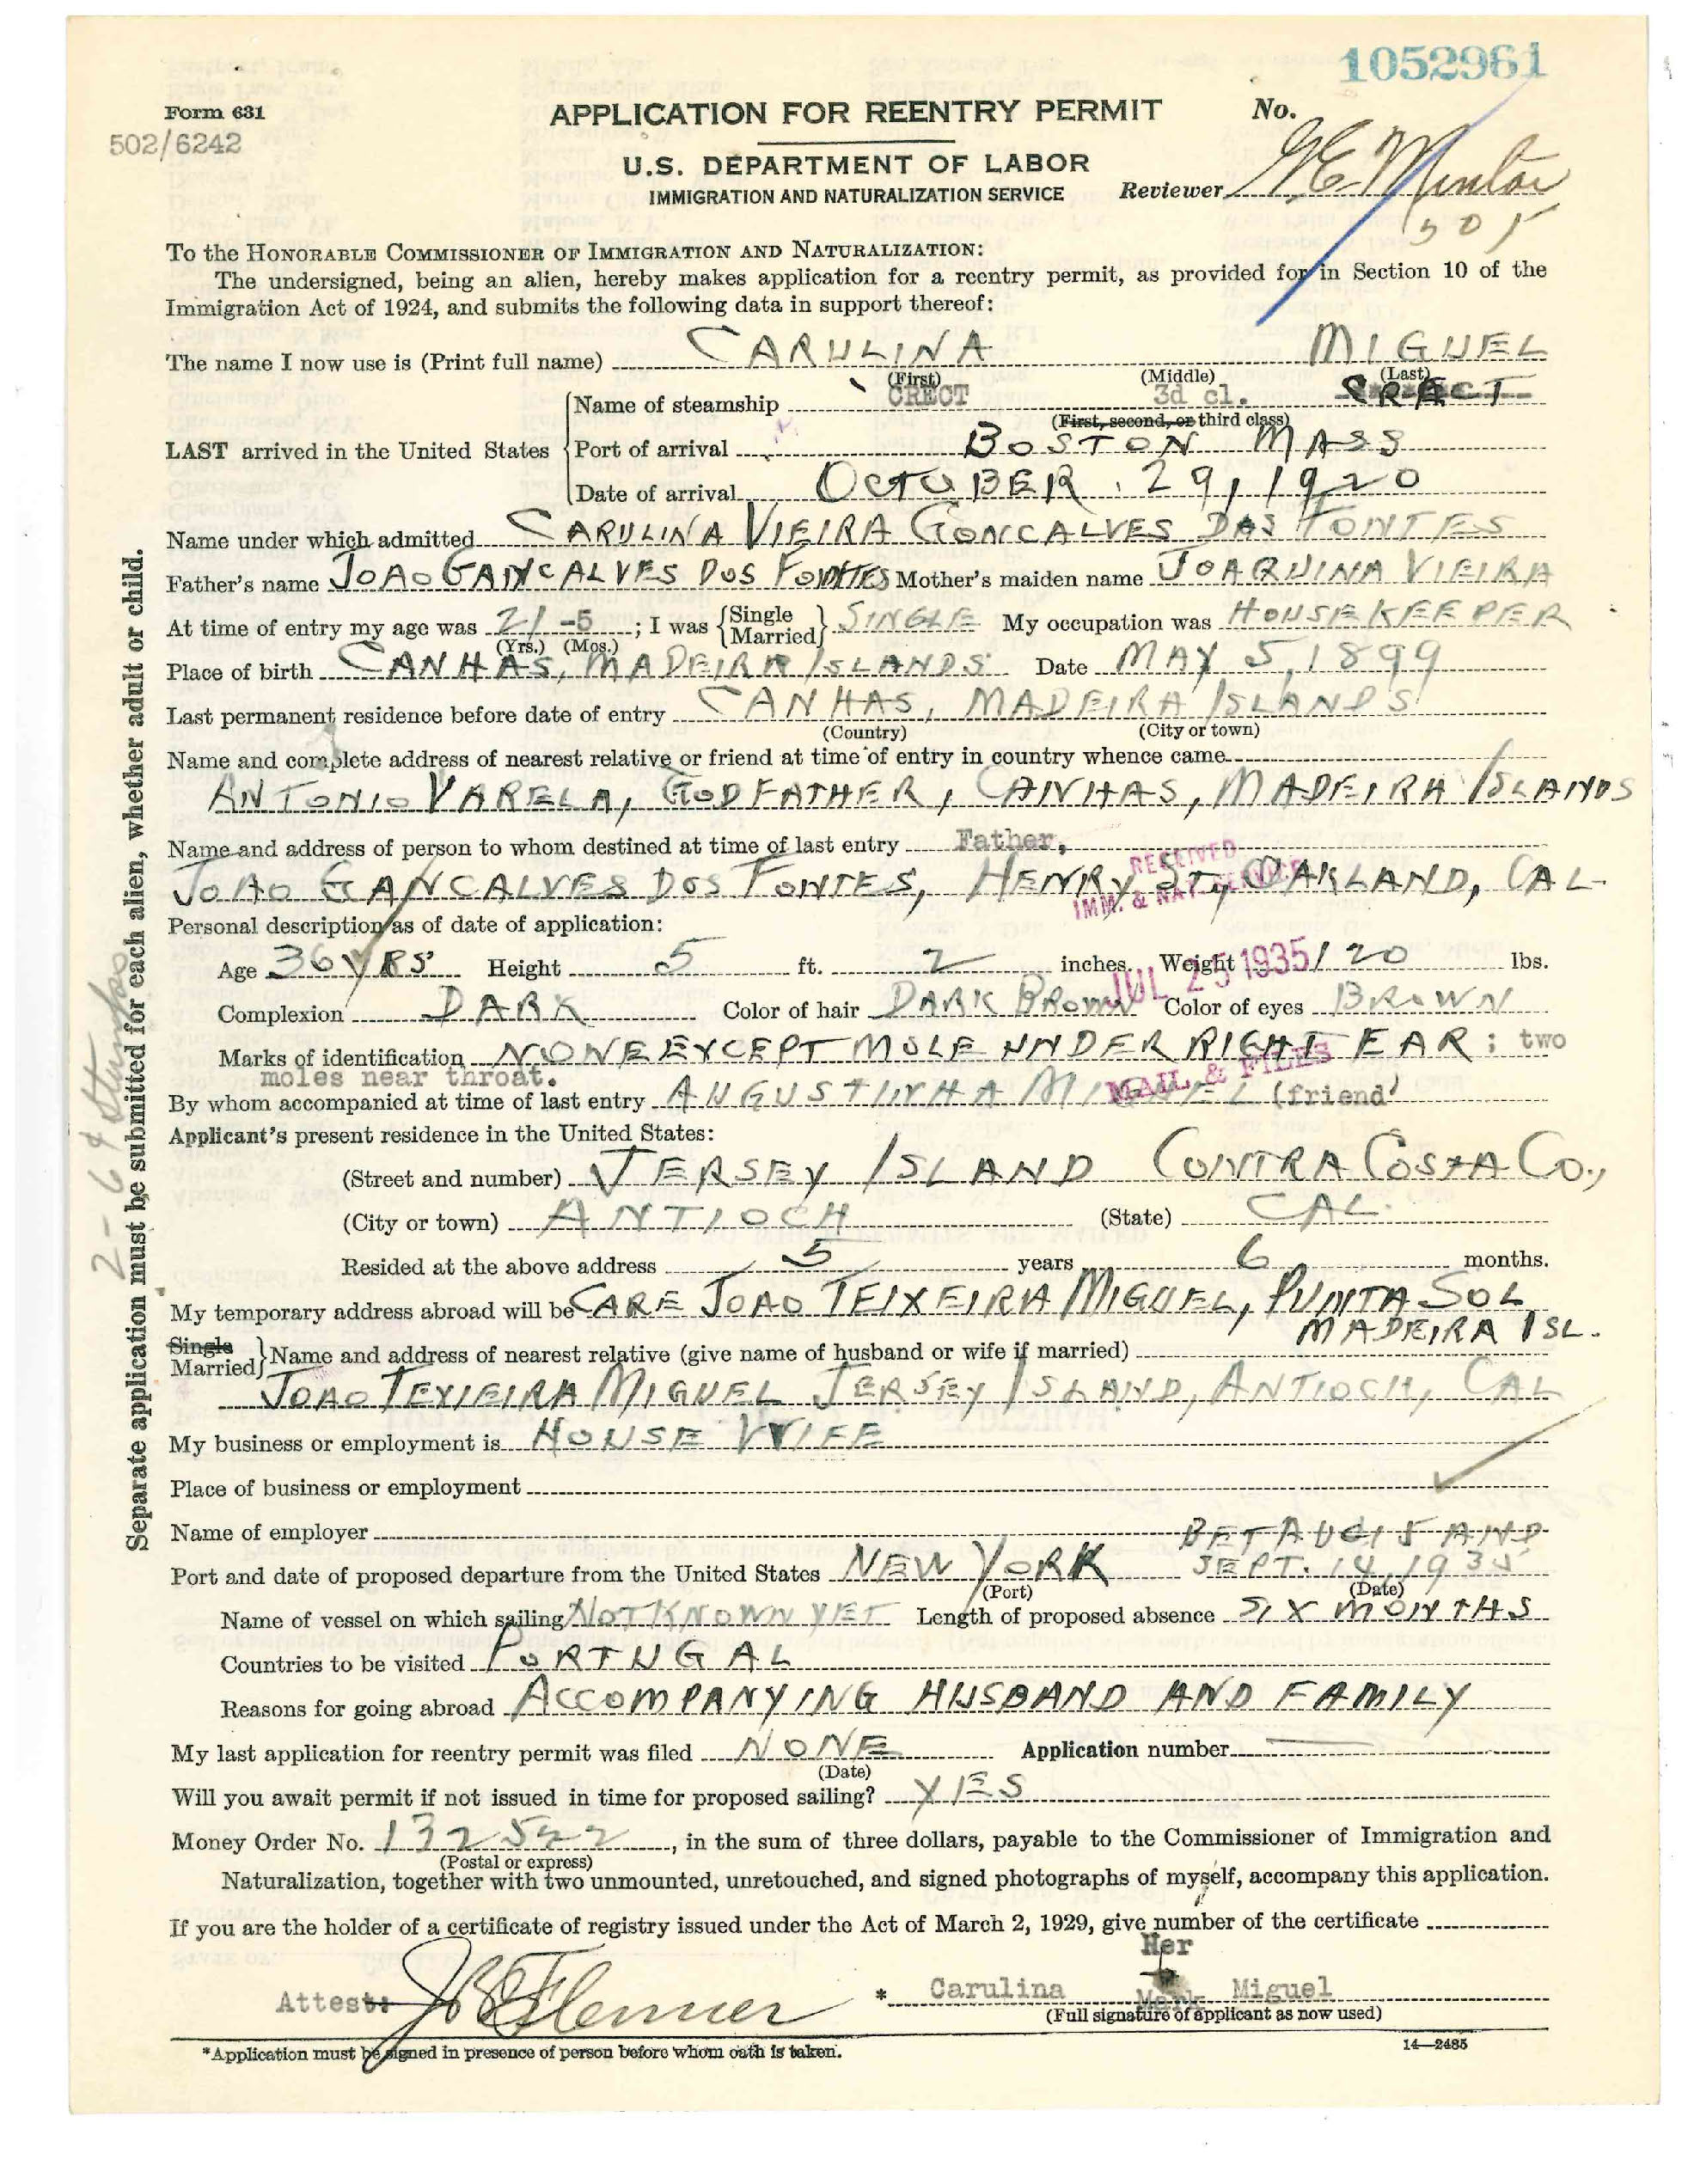 1052961
Form 631
APPLICATION FOR REENTRY PERMIT
No.
502/6242
U.S. DEPARTMENT OF LABOR
IMMIGRATION AND NATURALIZATION SERVICE
Reviewer G E Minton
505
To the HONORABLE COMMISSIONER OF IMMIGRATION AND NATURALIZATION:
The undersigned, being an alien, hereby makes application for a reentry permit, as provided for in Section 10 of the
Immigration Act of 1924, and submits the following data in support thereof:
The name I now use is (Print full name) CARULINA MIGUEL
(First) (Middle) (Last)
Name of steamship CRECT 3d cl. CRECT
(First, second, or third class)
LAST arrived in the United States
Port of arrival BOSTON MASS
Date of arrival OCTOBER. 29, 1920
Name under which admitted CARULINA VIEIRA GONCALVES DAS FONTES
Father's name JOAO GANCALVES DOS FONTES Mother's maiden name JOAQUINA VIEIRA
At time of entry my age was 21 -5; I was {Single Married} SINGLE My occupation was HOUSEKEEPER
(Yrs.) (Mos.)
Place of birth CANHAS, MADEIRA ISLANDS Date MAY 5, 1899
Last permanent residence before date of entry CANHAS, MADEIRA ISLANDS
(Country) (City or town)
Name and complete address of nearest relative or friend at time of entry in country whence came
ANTONIO VARELA, GODFATHER, CANHAS, MADEIRA ISLANDS
Name and address of person to whom destined at time of last entry Father,
JOAO GANCALVES DOS FONTES, HENRY ST, OAKLAND, CAL.
RECEIVED
IMM. & NAT. SERVICE
Personal description as of date of application:
Age 36 YRS Height 5 ft. 2 inches. Weight 120 lbs.
JUL 25 1935
Complexion DARK Color of hair DARK BROWN Color of eyes BROWN
Marks of identification NONE EXCEPT MOLE UNDER RIGHT EAR; two
moles near throat.
MAIL & FILES
By whom accompanied at time of last entry AUGUSTINHA MIGUEL (friend)
Applicant's present residence in the United States:
(Street and number) JERSEY ISLAND CONTRA COSTA CO.,
(City or town) ANTIOCH (State) CAL.
Resided at the above address 5 years 6 months.
My temporary address abroad will be CARE JOAO TEIXEIRA MIGUEL, PUNTA SOL
MADEIRA ISL.
Single
Married} Name and address of nearest relative (give name of husband or wife if married)
JOAO TEXIEIRA MIGUEL JERSEY ISLAND, ANTIOCH, CAL
My business or employment is HOUSE WIFE
Place of business or employment
Name of employer
BET AUG 15 AND
Port and date of proposed departure from the United States NEW YORK SEPT. 14, 1935
(Port) (Date)
Name of vessel on which sailing NOT KNOWN YET Length of proposed absence SIX MONTHS
Countries to be visited PORTUGAL
Reasons for going abroad ACCOMPANYING HUSBAND AND FAMILY
My last application for reentry permit was filed NONE Application number
(Date)
Will you await permit if not issued in time for proposed sailing? YES
Money Order No. 132522, in the sum of three dollars, payable to the Commissioner of Immigration and
(Postal or express)
Naturalization, together with two unmounted, unretouched, and signed photographs of myself, accompany this application.
If you are the holder of a certificate of registry issued under the Act of March 2, 1929, give number of the certificate
Her
Attest: * Carulina Mark Miguel
(Full signature of applicant as now used)
*Application must be signed in presence of person before whom oath is taken.
14—2485
Separate application must be submitted for each alien, whether adult or child.